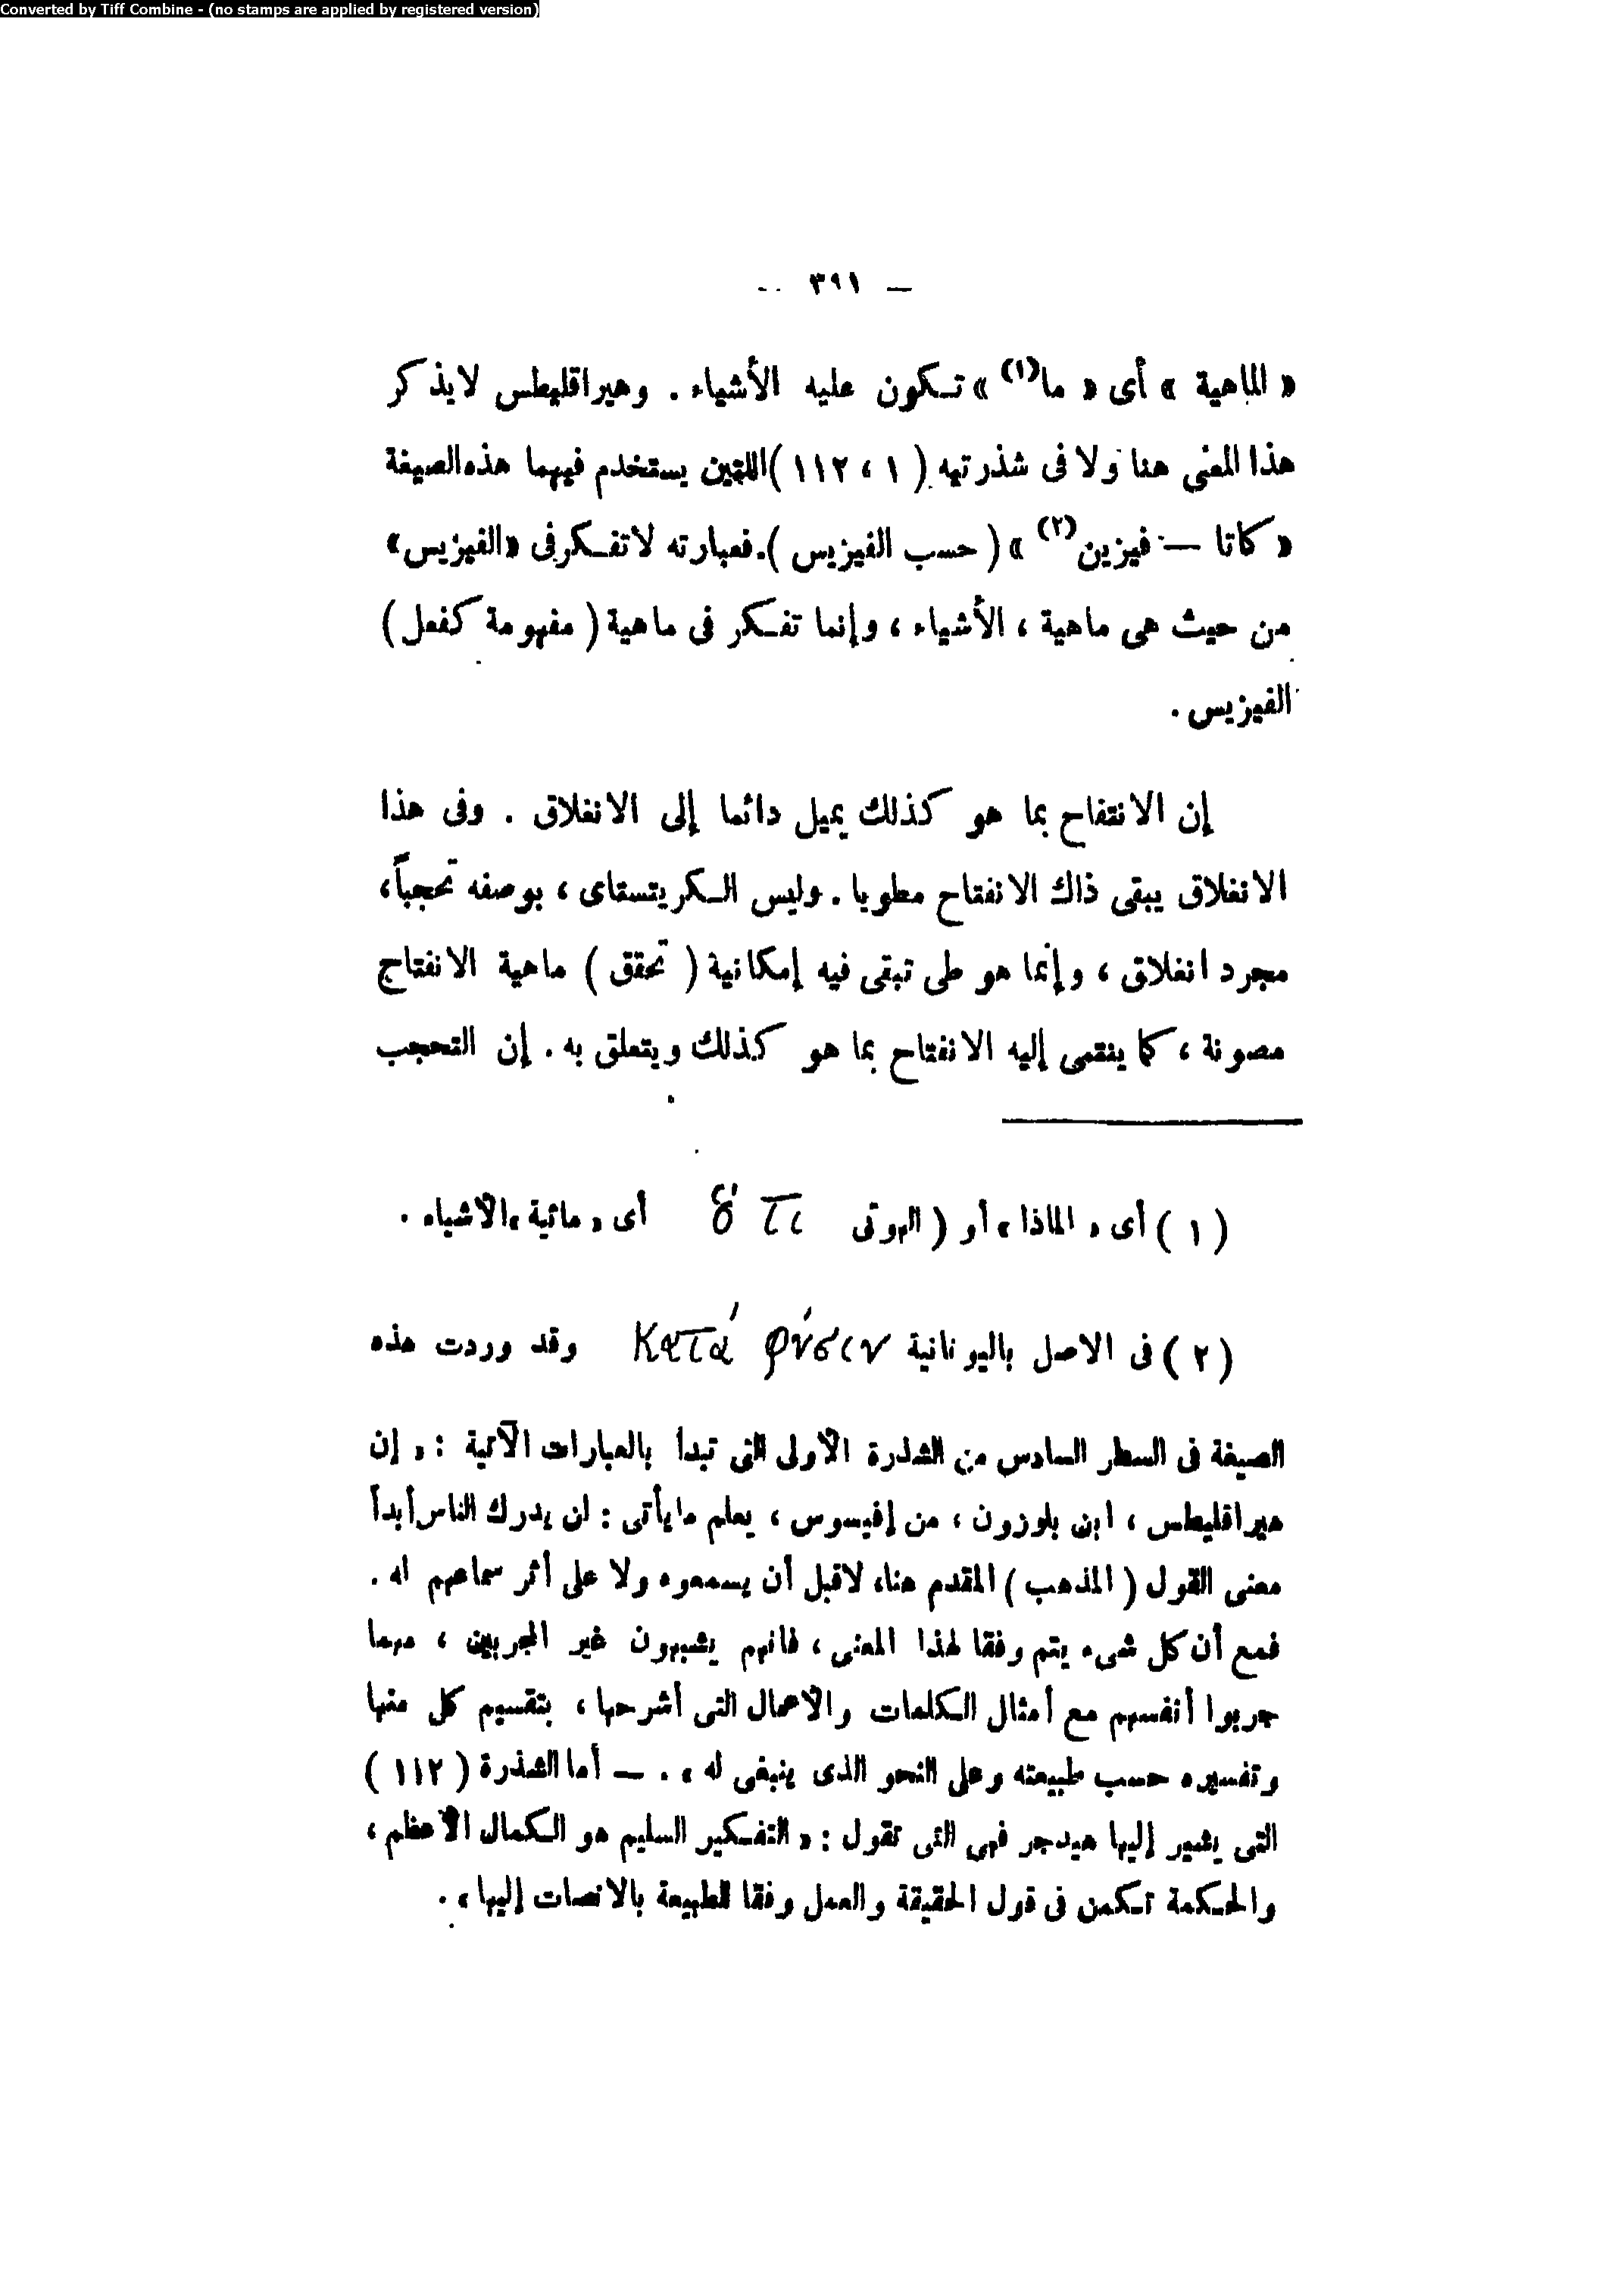 Converted by Tiff Combine - (no stamps are applied by registered version)
— ٣٩١ —
« الماهية » أى « ما(١) » تـكون عليه الأشياء . وهيراقليطس لايذكر
هذا المعنى هنا ولا فى شذرتيه ( ١ ، ١١٢ ) اللتين يستخدم فيهما هذه الصيغة
« كاتا — فيزين(٢) » ( حسب الفيزيس ). فعبارته لاتفـكر فى «الفيزيس»
من حيث هى ماهية ، الأشياء ، وإنما تفـكر فى ماهية ( مفهومة كفعل )
الفيزيس .
إن الانتفاح بما هو كذلك يميل دائما إلى الانغلاق . وفى هذا
الانغلاق يبقى ذاك الانفتاح مطويا . وليس الـكريتستاى ، بوصفه تحجباً ،
مجرد انغلاق ، وإنما هو طى تبقى فيه إمكانية ( تحقق ) ماهية الانفتاح
مصونة ، كما ينتمى إليه الانفتاح بما هو كذلك ويتعلق به . إن التحجب
( ١ ) أى « الماذا » أو ( الهوتى ὅ τι أى « مائية » الأشياء .
( ٢ ) فى الاصل باليونانية κατά φύσιν وقد وردت هذه
الصيغة فى السطر السادس من الشذرة الأولى التى تبدأ بالعبارات الآتية : « إن
هيراقليطس ، ابن بلوزون ، من إفيسوس ، يعلم مايأتى : لن يدرك الناس أبداً
معنى القول ( المذهب ) المقدم هنا، لاقبل أن يسمعوه ولا على أثر سماعهم له .
فمع أن كل شىء يتم وفقا لهذا المعنى ، فانهم يشبهون غير المجربين ، مهما
جربوا أنفسهم مع أمثال الـكلمات والأعمال التى أشرحها ، بتقسيم كل منها
وتفسيره حسب طبيعته وعلى النحو الذى ينبغى له » . — أما الشذرة ( ١١٢ )
التى يشير إليها هيدجر فهى التى تقول : « التفـكير السليم هو الـكمال الأعظم ،
والحـكمة تـكمن فى قول الحقيقة والعمل وفقا للطبيعة بالانصات إليها » .